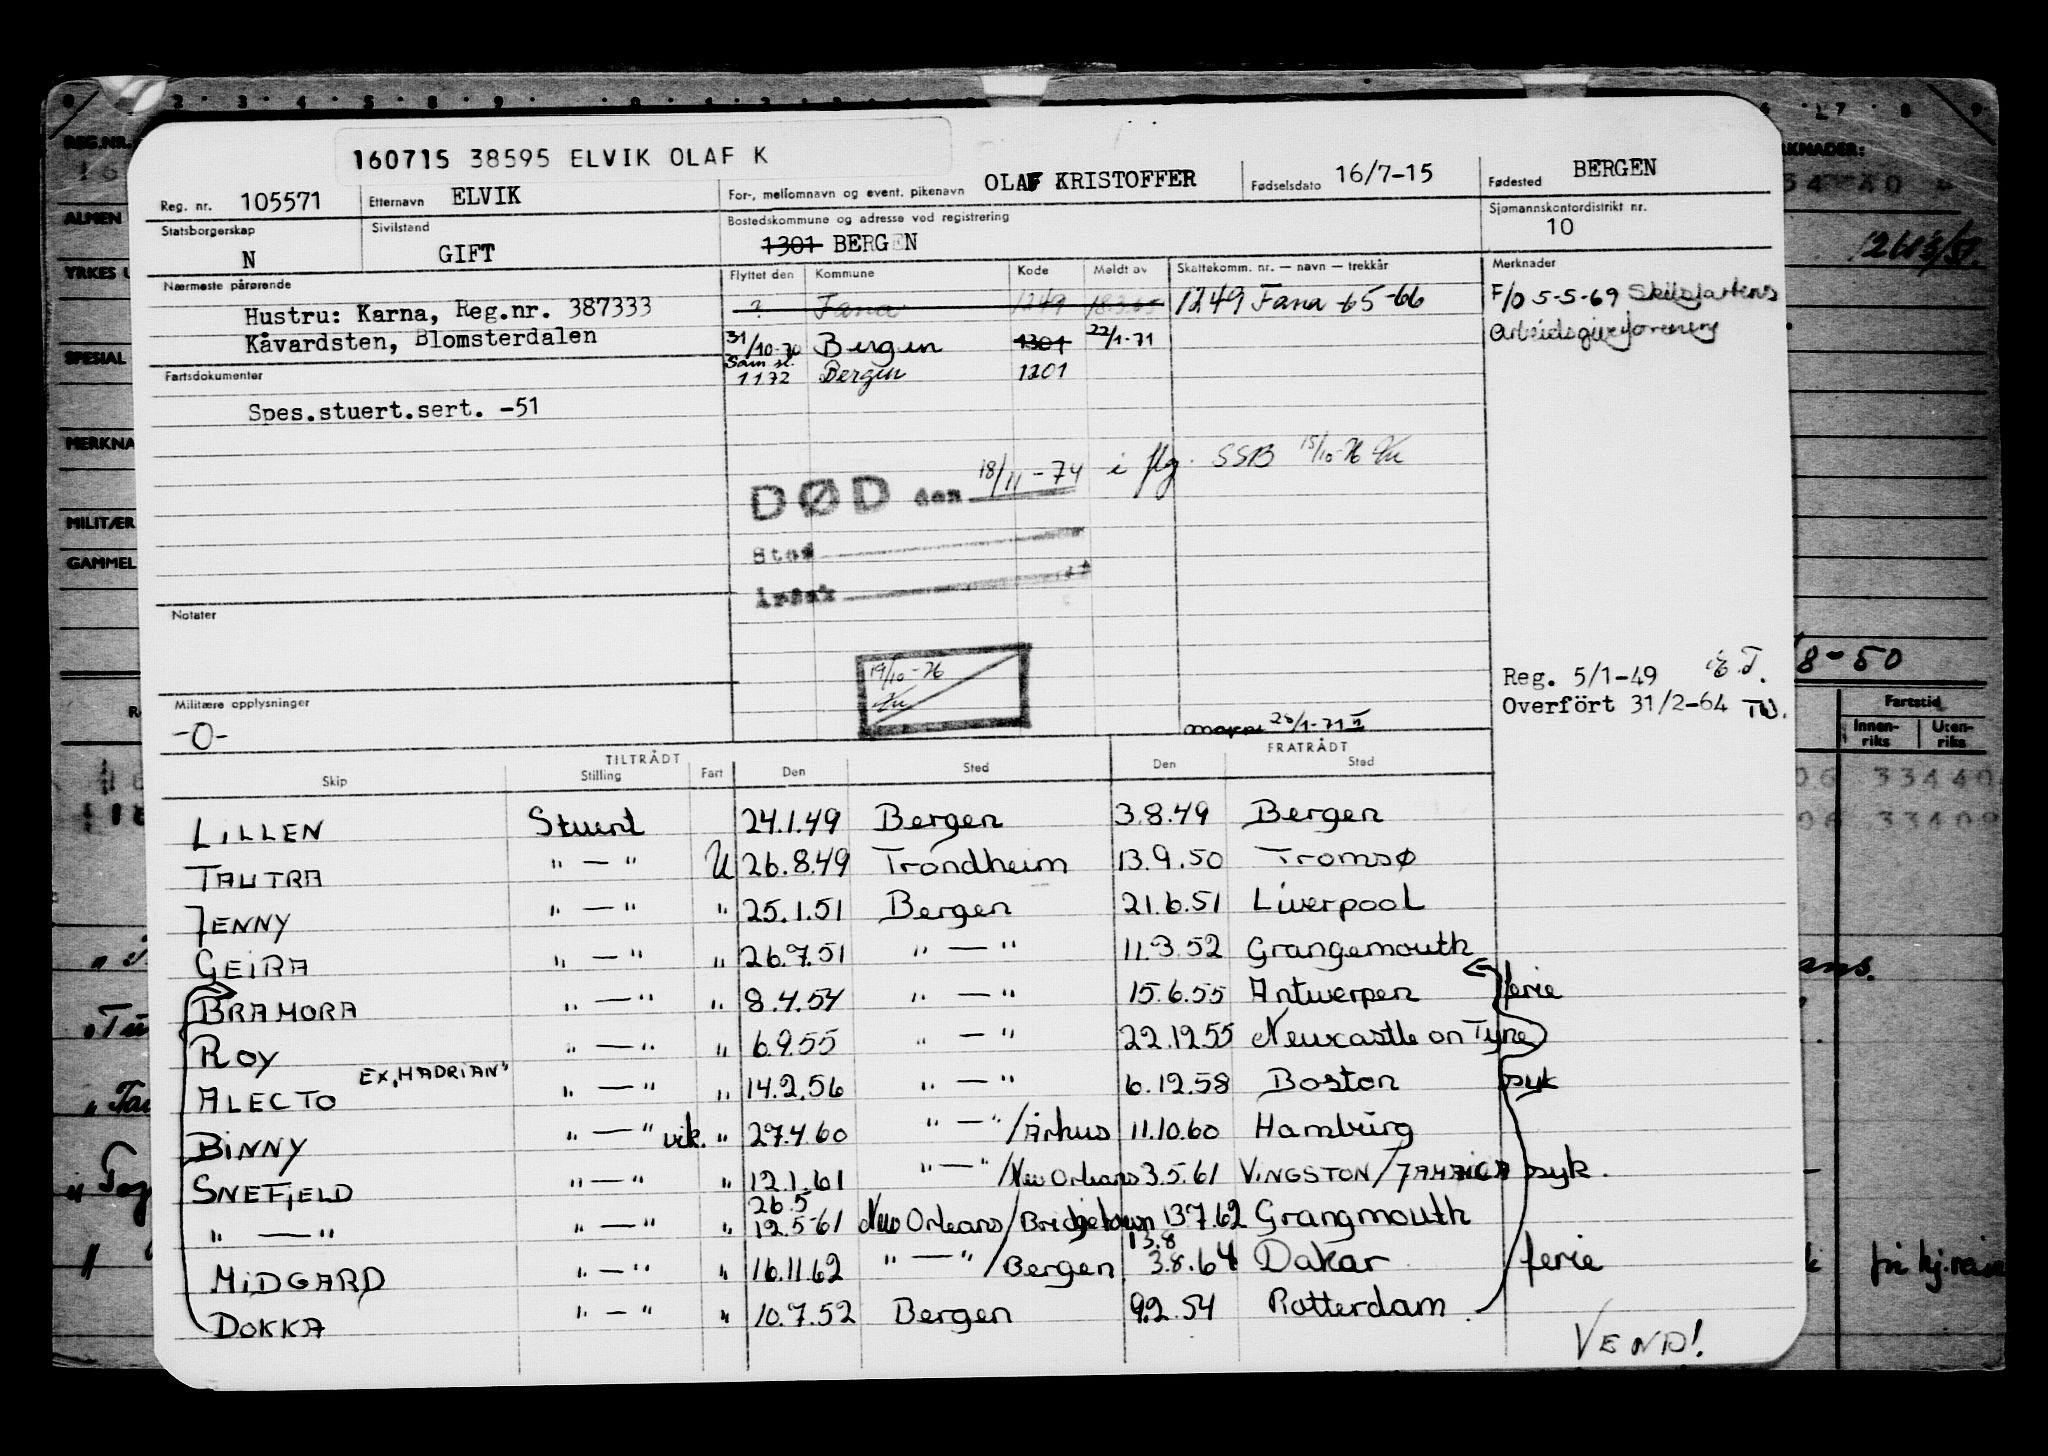 160715 38595 ELVIK OLAF K
Reg. nr. 105571 Etternavn ELVIK For-, mellomnavn og event. pikenavn OLAF KRISTOFFER Fødselsdato 16/7-15 Fødested BERGEN
Statsborgerskap N Sivilstand GIFT Bostedskommune og adresse ved registrering 1301 BERGEN Sjømannskontordistrikt nr. 10
Nærmeste pårørende Flyttet den Kommune Kode Meldt av Skattekomm. nr. — navn — trekkår Merknader
Hustru: Karna, Reg.nr. 387333 ? Fana 1249 1249 Fana -65-66 F/O 5-5-69 Skipsfartens
Kåvardsten, Blomsterdalen 31/10-70 Bergen 1301 22/1-71 Arbeidsgiverforening
Fartsdokumenter Sam sl. 1172 Bergen 1201
Spes.stuert.sert. -51
DØD den 18/11-74 i flg. SSB 15/10-76
Sted
Årsak
Notater
19/10-76
Reg. 5/1-49
Overfört 31/2-64 TW.
Militære opplysninger
-0-
20/1-71
TILTRÅDT FRATRÅDT
Skip Stilling Fart Den Sted Den Sted
LILLEN Stuert 24.1.49 Bergen 3.8.49 Bergen
TAUTRA " — " U 26.8.49 Trondheim 13.9.50 Tromsø
JENNY " — " " 25.1.51 Bergen 21.6.51 Liverpool
GEIRA " — " " 26.7.51 " — " 11.3.52 Grangemouth
BRAMORA " — " " 8.4.54 " — " 15.6.55 Antwerpen ferie
ROY " — " " 6.9.55 " — " 22.12.55 Newcastle on Tyne
ALECTO EX "HADRIAN" " — " " 14.2.56 " — " 6.12.58 Boston syk
BINNY " — " vik. " 27.4.60 " — " /Århus 11.10.60 Hamburg
SNEFJELD " — " " 12.1.61 " — " /New Orleans 3.5.61 VINGSTON/JAMAICA syk.
" — " " — " " 26.5 12.5-61 New Orleans/Bridgetown 13.7.62 Grangmouth
MIDGARD " — " " 16.11.62 " — " /Bergen 13.8 3.8.64 Dakar ferie
DOKKA " — " " 10.7.52 Bergen 9.2.54 Rotterdam
VEND!
REG.NR.
ALMEN
YRKES
SPESIAL
MERKNA
MILITÆR
GAMMEL
8-50
Fartstid
Innen-riks Uten-riks